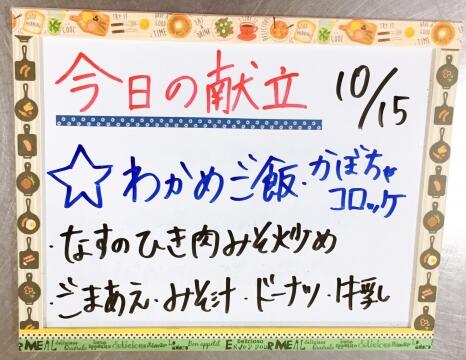 今日の献立 10/15
☆わかめご飯・かぼちゃコロッケ
・なすのひき肉みそ炒め
・ごまあえ・みそ汁・ドーナツ・牛乳